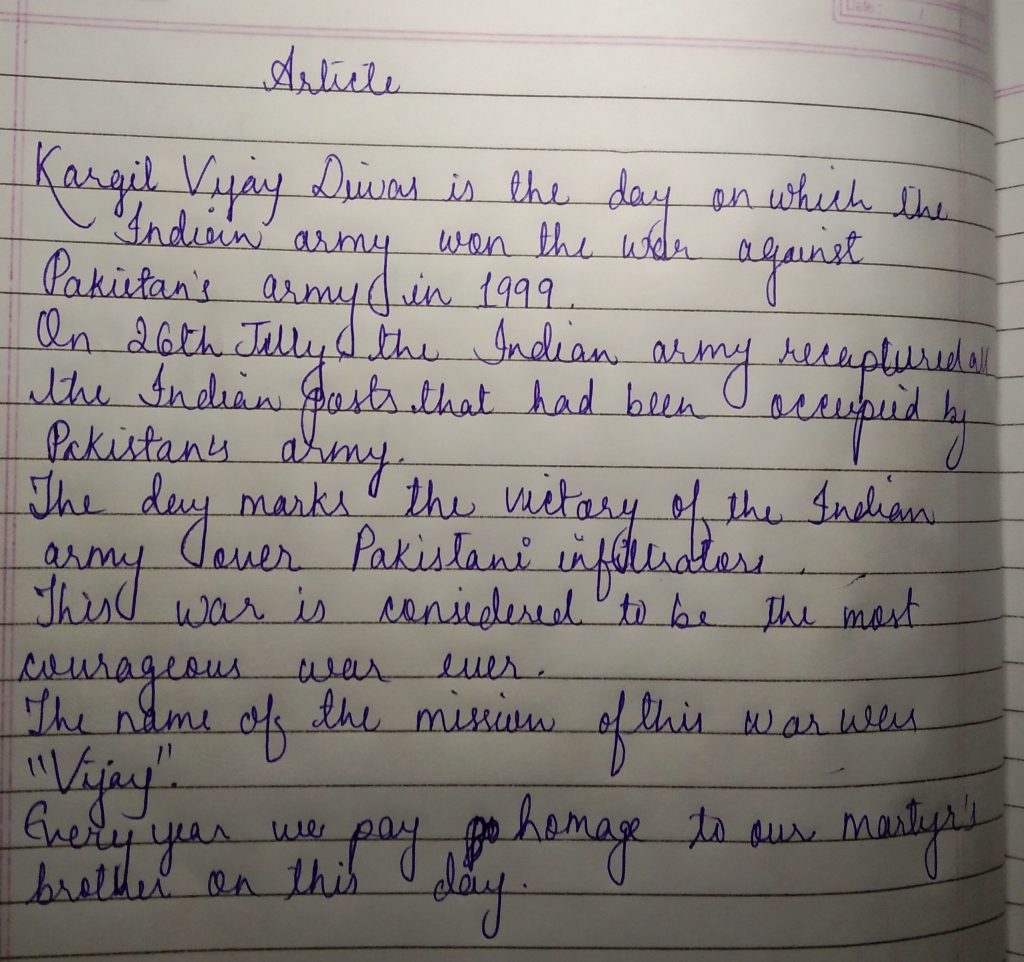 Date :
Article
Kargil Vijay Diwas is the day on which the
Indian army won the war against
Pakistan's army in 1999.
On 26th July the Indian army recaptured all
the Indian posts that had been occupied by
Pakistan's army.
The day marks the victory of the Indian
army over Pakistani infiltrators.
This war is considered to be the most
courageous war ever.
The name of the mission of this war was
"Vijay".
Every year we pay homage to our martyr's
brother on this day.